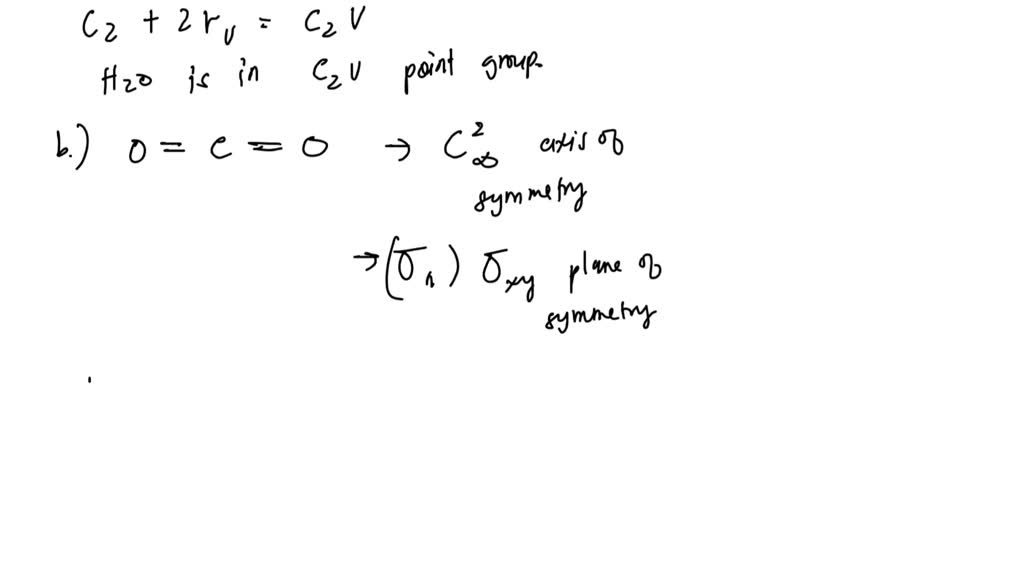 C₂ + 2σᵥ = C₂V
H₂O is in C₂V point group.
b.) O = C = O → C²∞ axis of
symmetry
→ (σₕ) σxy plane of
symmetry